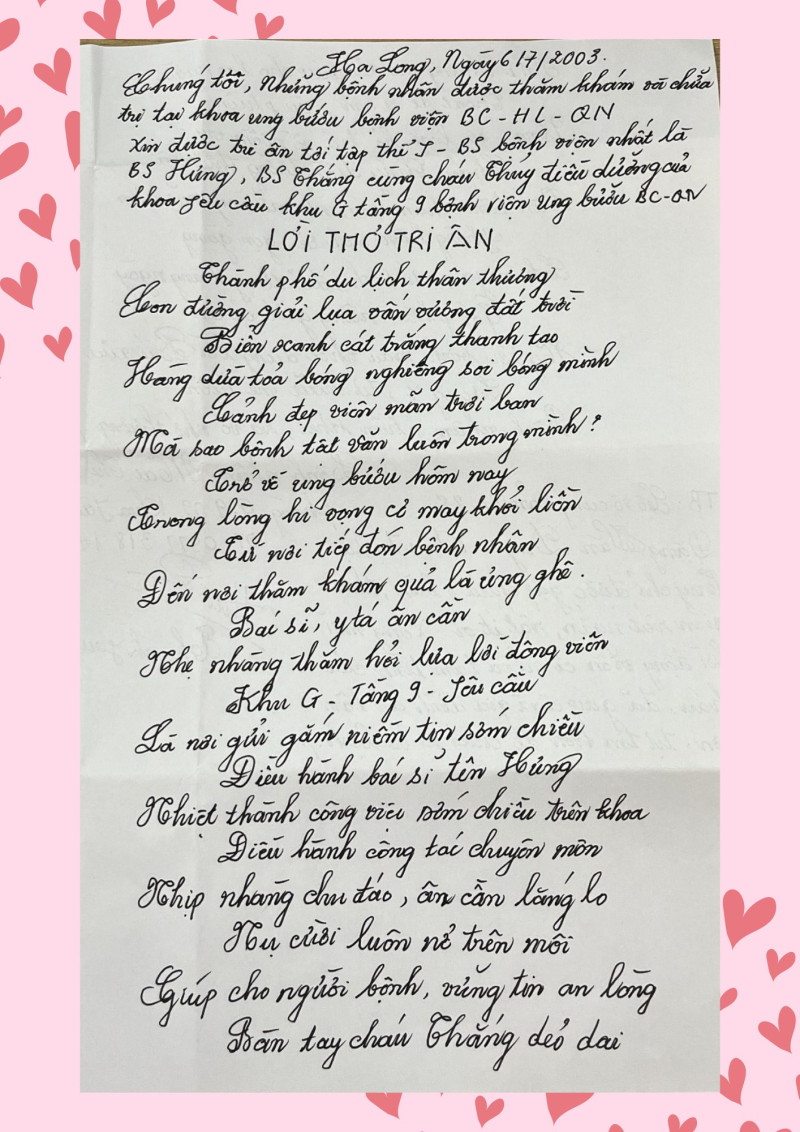 Hạ Long, Ngày 6/7/2003.
Chúng tôi, những bệnh nhân được thăm khám và chữa
trị tại khoa ung bướu bệnh viện BC - HL - QN
xin được tri ân tới tập thể Y - BS bệnh viện nhất là
BS Hùng, BS Thắng cùng cháu Thuỷ điều dưỡng của
khoa yêu cầu khu G tầng 9 bệnh viện ung bướu BC-QN
LỜI THƠ TRI ÂN
Thành phố du lịch thân thương
Con đường giải lụa vấn vương đất trời
Biển xanh cát trắng thanh tao
Hàng dừa toả bóng nghiêng soi bóng mình
Cảnh đẹp viên mãn trời ban
Mà sao bệnh tật vẫn luôn trong mình?
Trở về ung bướu hôm nay
Trong lòng hi vọng cơ may khỏi liền
Từ nơi tiếp đón bệnh nhân
Đến nơi thăm khám quả là ưng ghê.
Bác sĩ, y tá ân cần
Nhẹ nhàng thăm hỏi lựa lời động viên
Khu G - Tầng 9 - Yêu cầu
Là nơi gửi gắm niềm tin sớm chiều
Điều hành bác sĩ tên Hùng
Nhiệt thành công việc sớm chiều trên khoa
Điều hành công tác chuyên môn
Nhịp nhàng chu đáo, ân cần lắng lo
Nụ cười luôn nở trên môi
Giúp cho người bệnh, vững tin an lòng
Bàn tay cháu Thắng dẻo dai